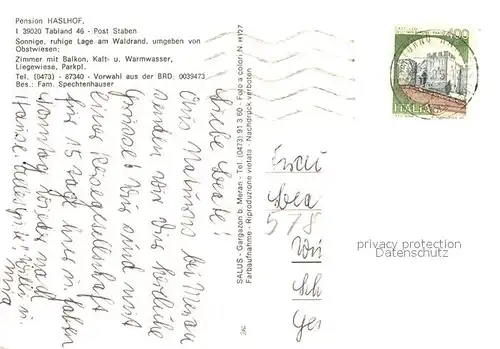 Pension HASLHOF,
I 39020 Tabland 46 - Post Staben
Sonnige, ruhige Lage am Waldrand, umgeben von
Obstwiesen;
Zimmer mit Balkon, Kalt- u. Warmwasser,
Liegewiese, Parkpl.
Tel. (0473) - 87340 - Vorwahl aus der BRD 0039473
Bes.: Fam. Spechtenhauser
Liebe Beate!
Aus Naturns bei Meran
senden wir Dir herzliche
Grüsse! Wir sind mit
einer Reisegesellschaft
für 15 hier u. fahren
Sonntag wieder nach
Hause. Willi u.
SALUS - Gargazon b. Meran - Tel. (0473) 91 3 60 - Foto a colori N. H127
Farbaufnahme - Riproduzione vietata - Nachdruck verboten
400
ITALIA
Frau
Bea
578
privacy protection
Datenschutz